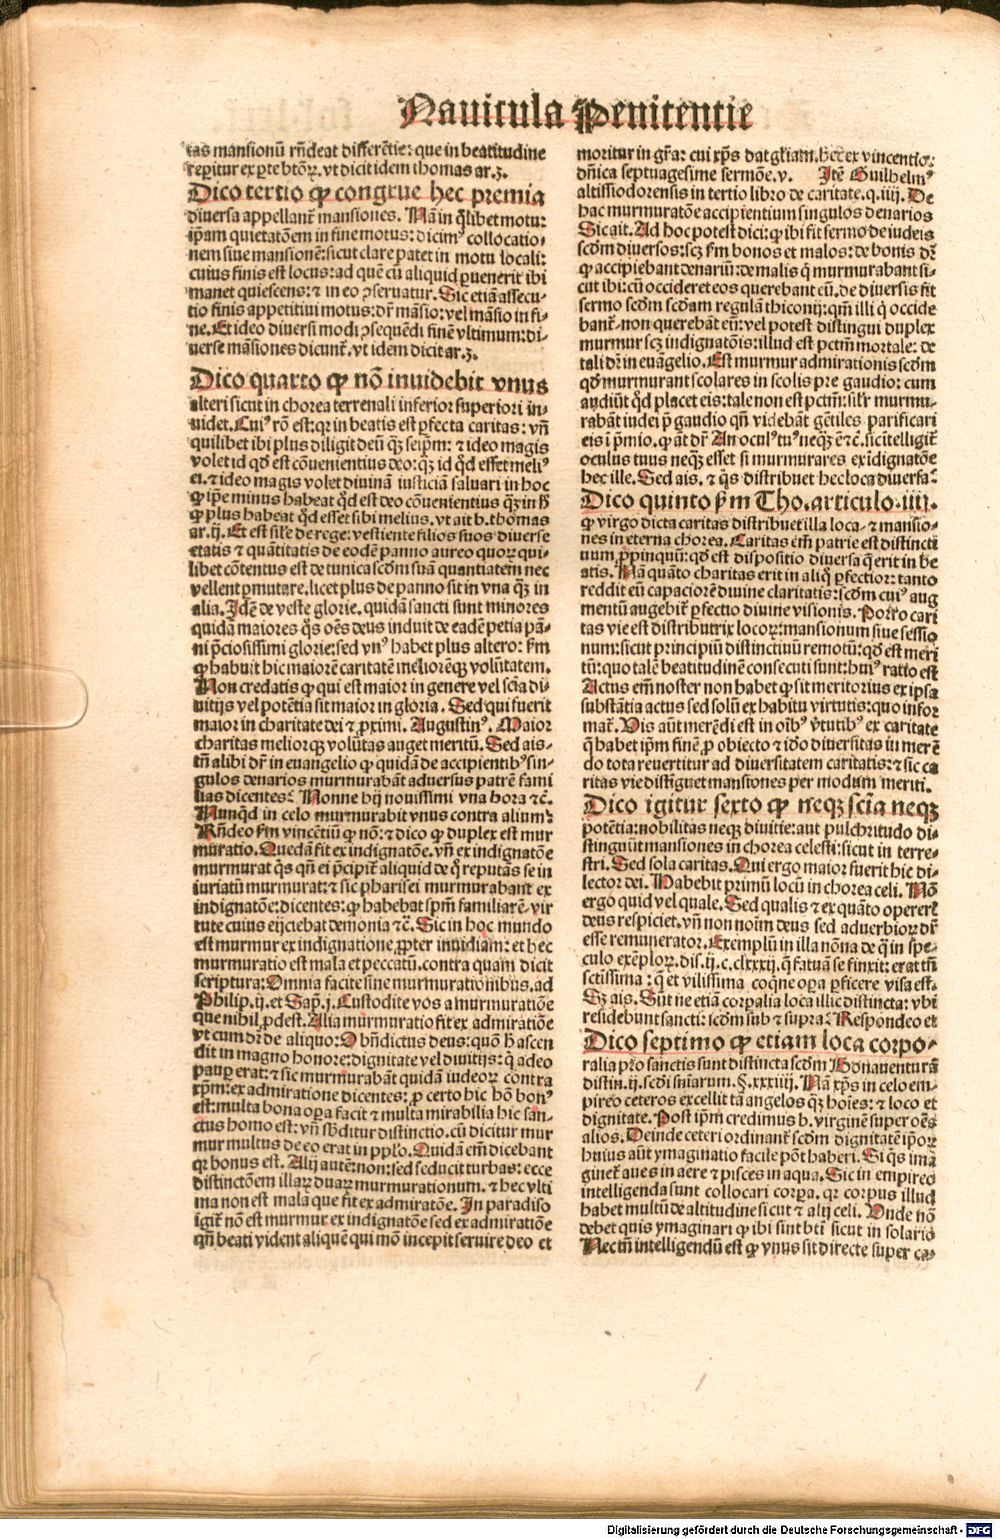 Nauicula Penitentie
tas mansionũ rñdeat differẽtie: que in beatitudine
reperitur ex ꝑte btõꝝ. vt dicit idem thomas ar.ʒ.
Dico tertio ꝙ congrue hec premia
diuersa appellant᷑ mansiones. Nã in q̃libet motu:
ip̃am quietatõem in fine motus: dicim⁹ collocatio-
nem siue mansionẽ: sicut clare patet in motu locali:
cuius finis est locus: ad quẽ cũ aliquid ꝑuenerit ibi
manet quiescens: ⁊ in eo ꝯseruatur. Sic etiã assecu-
tio finis appetitiui motus: dr̃ mãsio: vel mãsio in fi-
ne. Et ideo diuersi modi ꝯsequẽdi finẽ vltimum: di-
uerse mãsiones dicunt᷑. vt idem dicit ar.ʒ.
Dico quarto ꝙ nõ inuidebit vnus
alteri sicut in chorea terrenali inferior superiori in-
uidet. Cui⁹ rõ est: qr in beatis est ꝑfecta caritas: vñ
quilibet ibi plus diligit deũ qꝫ seip̃m: ⁊ ideo magis
volet id qd̃ est cõuenientius deo: qꝫ id qd̃ esset meli⁹
ei. ⁊ ideo magis volet diuinã iusticiã saluari in hoc
ꝙ ip̃e minus habeat qd̃ est deo cõuenientius qꝫ in h̃
ꝙ plus habeat qd̃ esset sibi melius. vt ait b. thomas
ar.ij. Et est sil̃e de rege: vestiente filios suos diuerse
etatis ⁊ quãtitatis de eodẽ panno aureo quoꝝ qui-
libet cõtentus est de tunica scd̃m suã quantiatem nec
vellent ꝑmutare, licet plus de panno sit in vna qꝫ in
alia. Idẽ de veste glorie. quidã sancti sunt minores
quidã maiores q̃s oẽs deus induit de eadẽ petia pã-
ni p̃ciosissimi glorie: sed vn⁹ habet plus altero: ẜm
ꝙ habuit hic maiorẽ caritatẽ meliorẽqꝫ volũtatem.
Non credatis ꝙ qui est maior in genere vel scĩa di-
uitijs vel potẽtia sit maior in gloria. Sed qui fuerit
maior in charitate dei ⁊ ꝓximi. Augustin⁹. Maior
charitas meliorqꝫ volũtas auget meritũ. Sed ais-
tñ alibi dr̃ in euangelio ꝙ quidã de accipientib⁹ sin-
gulos denarios murmurabãt aduersus patrẽ fami
lias dicentes: Nonne hij nouissimi vna hora ⁊c̃.
Nunqd̃ in celo murmurabit vnus contra alium:
Rñdeo ẜm vincẽtiũ ꝙ nõ: ⁊ dico ꝙ duplex est mur
muratio. Quedã fit ex indignatõe. vñ ex indignatõe
murmurat q̃s qñ ei p̃cipit᷑ aliquid de q̃ reputãs se in
iuriatũ murmurat: ⁊ sic pharisei murmurabant ex
indignatõe: dicentes: ꝙ habebat sp̃m familiarẽ- vir
tute cuius eijciebat demonia ⁊c̃. Sic in hoc mundo
est murmur ex indignatione ꝓpter inuidiam: et hec
murmuratio est mala et peccatũ. contra quam dicit
scriptura: Omnia facite sine murmurationibus. ad
Philip.ij. et Sap̃.j. Custodite vos a murmuratiõe
que nihil ꝓdest. Alia murmuratio fit ex admiratiõe
vt cum dr̃ de aliquo: O bñdictus deus: quõ h̃ ascen
dit in magno honore: dignitate vel diuitijs: q̃ adeo
paupẽr erat: ⁊ sic murmurabãt quidã iudeoꝝ contra
xp̃m: ex admiratione dicentes: ꝓ certo hic hõ bon⁹
est: multa bona oꝑa facit ⁊ multa mirabilia hic san-
ctus homo est: vñ sb̃ditur distinctio. cũ dicitur mur
mur multus de eo erat in pp̃lo. Quidã em̃ dicebant
qr bonus est. Alij autẽ: non: sed seducit turbas: ecce
distinctõem illaꝝ duaꝝ murmurationum. ⁊ hec vlti
ma non est mala que fit ex admiratõe. In paradiso
igit᷑ nõ est murmur ex indignatõe sed ex admiratiõe
qñ beati vident aliquẽ qui mõ incepit seruire deo et
moritur in gr̃a: cui xp̃s dat gl̃iam. hec ex vincentio:
dñica septuagesime sermõe.v. Itẽ Guilhelm⁹
altissiodorensis in tertio libro de caritate.q.iiij. De
hac murmuratõe accipientium singulos denarios
Sic ait. Ad hoc potest dici: ꝙ ibi fit sermo de iudeis
scd̃m diuersos: scꝫ ẜm bonos et malos: de bonis dr̃
ꝙ accipiebant denariũ: de malis q̃ murmurabant si-
cut ibi: cũ occideret eos querebant eũ. de diuersis fit
sermo scd̃m scd̃am regulã thiconij: qm̃ illi q̃ occide
bant᷑. non querebãt eũ: vel potest distingui duplex
murmur scꝫ indignatõis: illud est pctm̃ mortale: de
tali dr̃ in euãgelio. Est murmur admirationis scd̃m
qd̃ murmurant scolares in scolis pre gaudio: cum
audiũt qd̃ placet eis: tale non est pctm̃: sil̃r murmu-
rabãt iudei p̃ gaudio qñ videbãt gẽtiles parificari
eis ĩ p̃mio. ꝙ ãt dr̃ An ocul⁹ tu⁹ neqꝫ ẽ ⁊c̃. sic ĩtelligit᷑
oculus tuus neqꝫ esset si murmurares ex ĩdignatõe
hec ille. Sed ais. ⁊ q̃s distribuet hec loca diuersa:
Dico quinto ẜm Tho. articulo .iij.
ꝙ virgo dicta caritas distribuet illa loca- ⁊ mansio-
nes in eterna chorea. Caritas em̃ patrie est distincti
uum ꝓpinquũ: qd̃ est dispositio diuersa q̃ erit in be
atis. Nã quãto charitas erit in aliq̃ ꝑfectior: tanto
reddit eũ capaciorẽ diuine claritatis: scd̃m cui⁹ aug
mentũ augebit᷑ ꝑfectio diuine visionis. Porro cari
tas vie est distributrix locoꝝ: mansionum siue sessio
num: sicut principiũ distinctiuũ remotũ: qd̃ est meri
tũ: quo talẽ beatitudinẽ consecuti sunt: hui⁹ ratio est
Actus em̃ noster non habet ꝙ sit meritorius ex ipsa
substãtia actus sed solũ ex habitu virtutis: quo infor
mat᷑. Vis aũt merẽdi est in oĩb⁹ v̓tutib⁹ ex caritate
q̃ habet ip̃m finẽ ꝓ obiecto ⁊ id̃o diuersitas in merẽ
do tota reuertitur ad diuersitatem caritatis: ⁊ sic ca
ritas vie distĩguet mansiones per modum meriti.
Dico igitur sexto ꝙ neqꝫ scĩa neqꝫ
potẽtia: nobilitas neqꝫ diuitie: aut pulchritudo di-
stinguũt mansiones in chorea celesti: sicut in terre-
stri. Sed sola caritas. Qui ergo maior fuerit hic di-
lector dei. Habebit primũ locũ in chorea celi. Nõ
ergo quid vel quale. Sed qualis ⁊ ex quãto operet᷑
deus respiciet. vñ non noĩm deus sed aduerbioꝝ dr̃
esse remunerator. Exemplũ in illa nõna de q̃ in spe-
culo exẽploꝝ. dis.ij.c.clxxxij. q̃ fatuã se finxit: erat tñ
sctissima: q̃ et vilissima coqñe oꝑa ꝑficere visa est.
Sꝫ ais. Sũt ne etiã corꝑalia loca illic distincta: vbi
residebunt sancti: scd̃m sub ⁊ supra: Respondeo et
Dico septimo ꝙ etiam loca corpo-
ralia pr̃o sanctis sunt distincta scd̃m Bonauenturã
distin.ij. scd̃i sñiarum.§.xxxiiij. Nã xp̃s in celo em-
pireo ceteros excellit tã angelos qꝫ hoĩes: ⁊ loco et
dignitate. Post ip̃m credimus b. virginẽ super oẽs
alios. Deinde ceteri ordinant᷑ scd̃m dignitatẽ ip̃oꝝ
huius aũt ymaginatio facile põt haberi. Si q̃s ima
ginet᷑ aues in aere ⁊ pisces in aqua. Sic in empireo
intelligenda sunt collocari corꝑa. qr corpus illud
habet multũ de altitudine sicut ⁊ alij celi. Unde nõ
debet quis ymaginari ꝙ ibi sint bt̃i sicut in solario
Nec tm̃ intelligendũ est ꝙ vnus sit directe super ca-
Digitalisierung gefördert durch die Deutsche Forschungsgemeinschaft - DFG